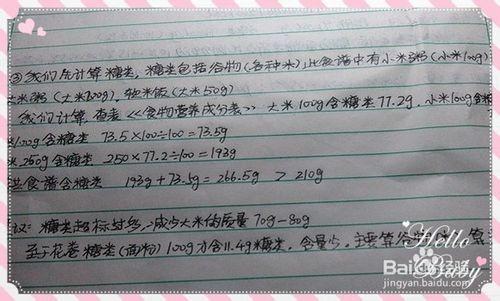 ③我们先计算糖类，糖类包括谷物(各种米)，此食谱中有小米粥(小米100g)
大米粥(大米200g)，软米饭(大米50g)
我们计算，查表《食物营养成分表》大米100g含糖类77.2g，小米100g含糖
100g含糖类 73.5×100÷100=73.5g
250g含糖类 250×77.2÷100=193g
共食谱含糖类 193g+73.5g=266.5g > 210g
议：糖类超标过多，减少大米的质量70g-80g
至于花卷糖类(面粉)100g才含11.49糖类，含量少，主要算谷
Hello
Baby
Baidu经验
jingyan.baidu.com